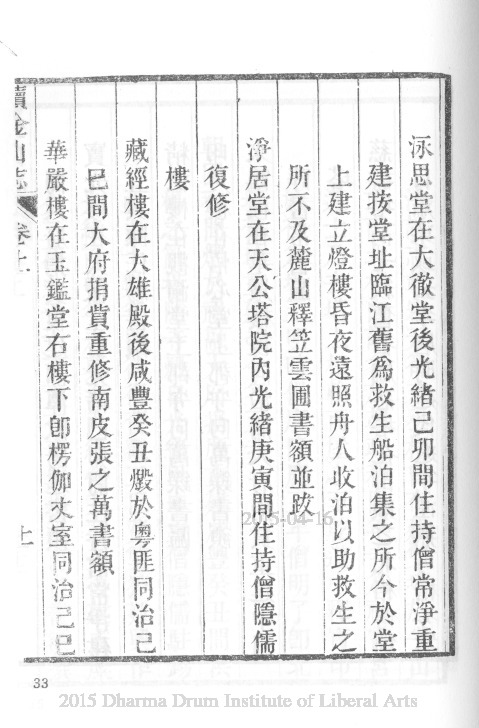 泳思堂在大徹堂後光緒己卯間住持僧常淨重
建按堂址臨江舊爲救生船泊集之所今於堂
上建立燈樓昏夜遠照舟人收泊以助救生之
所不及麓山釋笠雲圃書額並跋
淨居堂在天公塔院內光緒庚寅間住持僧隱儒
復修
樓
藏經樓在大雄殿後咸豐癸丑燬於粵匪同治己
巳間大府捐貲重修南皮張之萬書額
華嚴樓在玉鑑堂右樓下卽楞伽丈室同治己巳
續金山志
卷上
上
33
2015-04-16
2015 Dharma Drum Institute of Liberal Arts